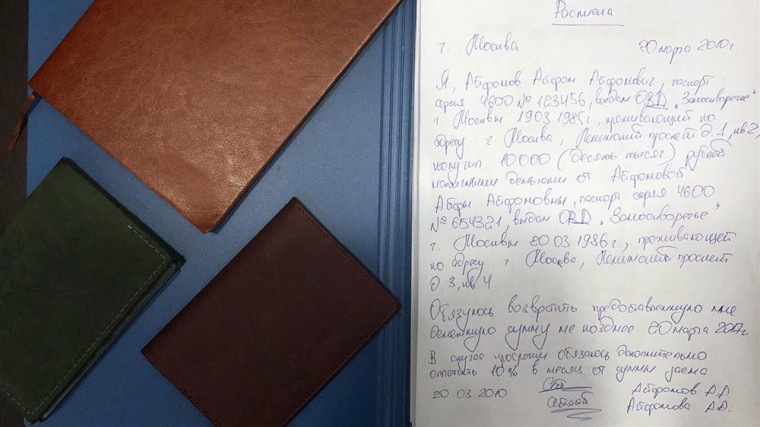 Расписка
г. Москва 20 марта 2010г.
Я, Айфонов Айфон Айфонович, паспорт:
серия 4600 № 123456, выдан ОВД "Замоскворечье"
г. Москвы 19 03 1985г., проживающий по
адресу: г. Москва, Ленинский проспект д. 1, кв 2,
получил 10 000 (десять тысяч) рублей
наличными деньгами от Айфоновой
Айфы Айфоновны, паспорт: серия 4600
№ 654321, выдан ОВД "Замоскворечье"
г. Москвы 20 03 1986г., проживающей
по адресу: г. Москва, Ленинский проспект
д 3, кв. 4
Обязуюсь возвратить предоставленную мне
денежную сумму не позднее 20 марта
В случае просрочки обязуюсь дополнительно
10% в месяц от суммы займа
20 03 2010 Айфонов А.А
Айфонова А.А.